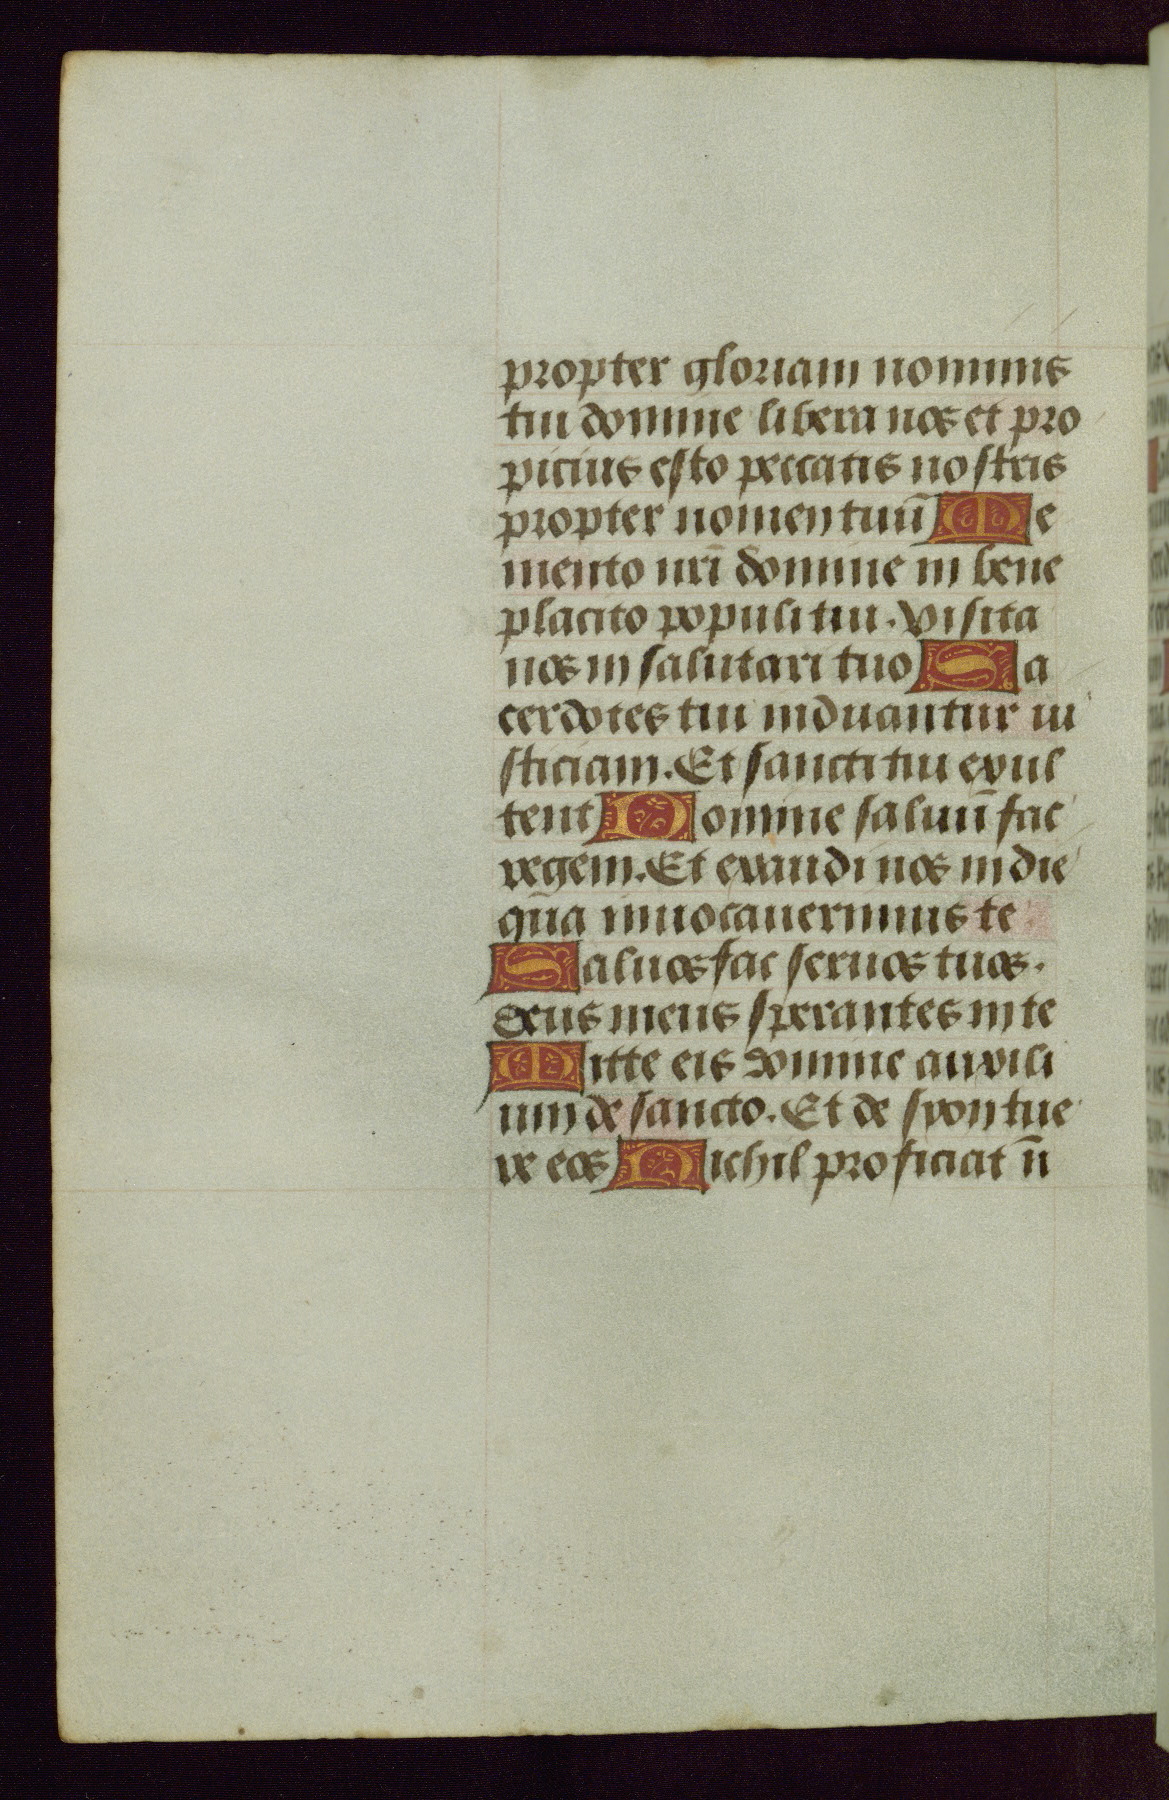 propter gloriam nominis
tui domine libera nos et pro
picius esto peccatis nostris
propter nomen tuū Me
mento nr̄i domine in bene
placito populi tui. Visita
nos in salutari tuo Sa
cerdotes tui induantur iu
sticiam. Et sancti tui exul
tent Domine saluū fac
regem. Et exaudi nos in die
qūa inuocauerimus te
Saluos fac seruos tuos.
deus meus sperantes in te
Mitte eis domine auxili
um de sancto. Et de syon tue
re eos Nichil proficiat ī